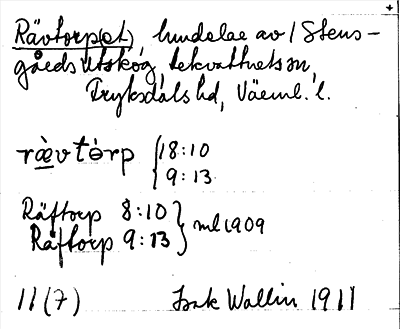 Rävtorp(et) lundelae av / Stens-
gårds Utskog, Lekvattnets sn,
Fryksdals hd, Värml. l.
rævtòrp { 18:10
9:13
Räftorp 8:10 } ml 1909
Räftorp 9:13
11 (7) Isak Wallin 1911